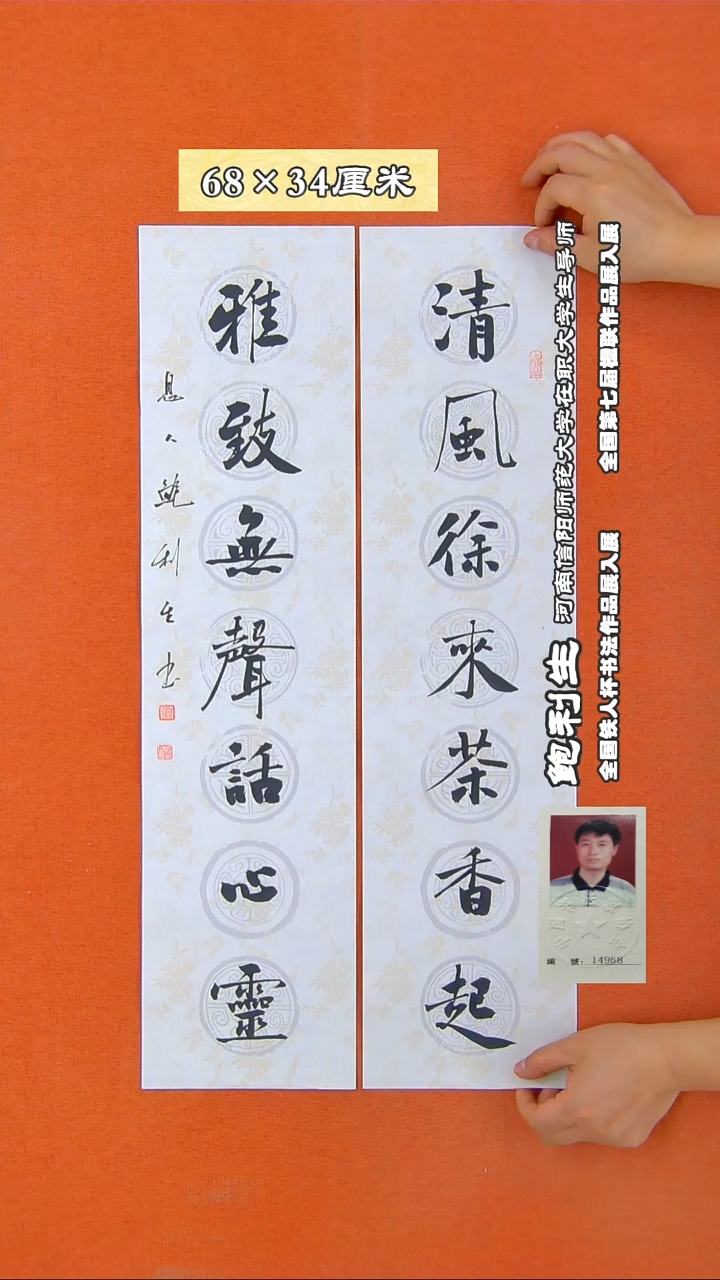 68×34厘米
清風徐來茶香起
雅致無聲話心靈
息人鲍利生书
鲍利生
河南信阳师范大学在职大学生导师
全国第七届楹联作品展入展
全国铁人杯书法作品展入展
編 號：14968